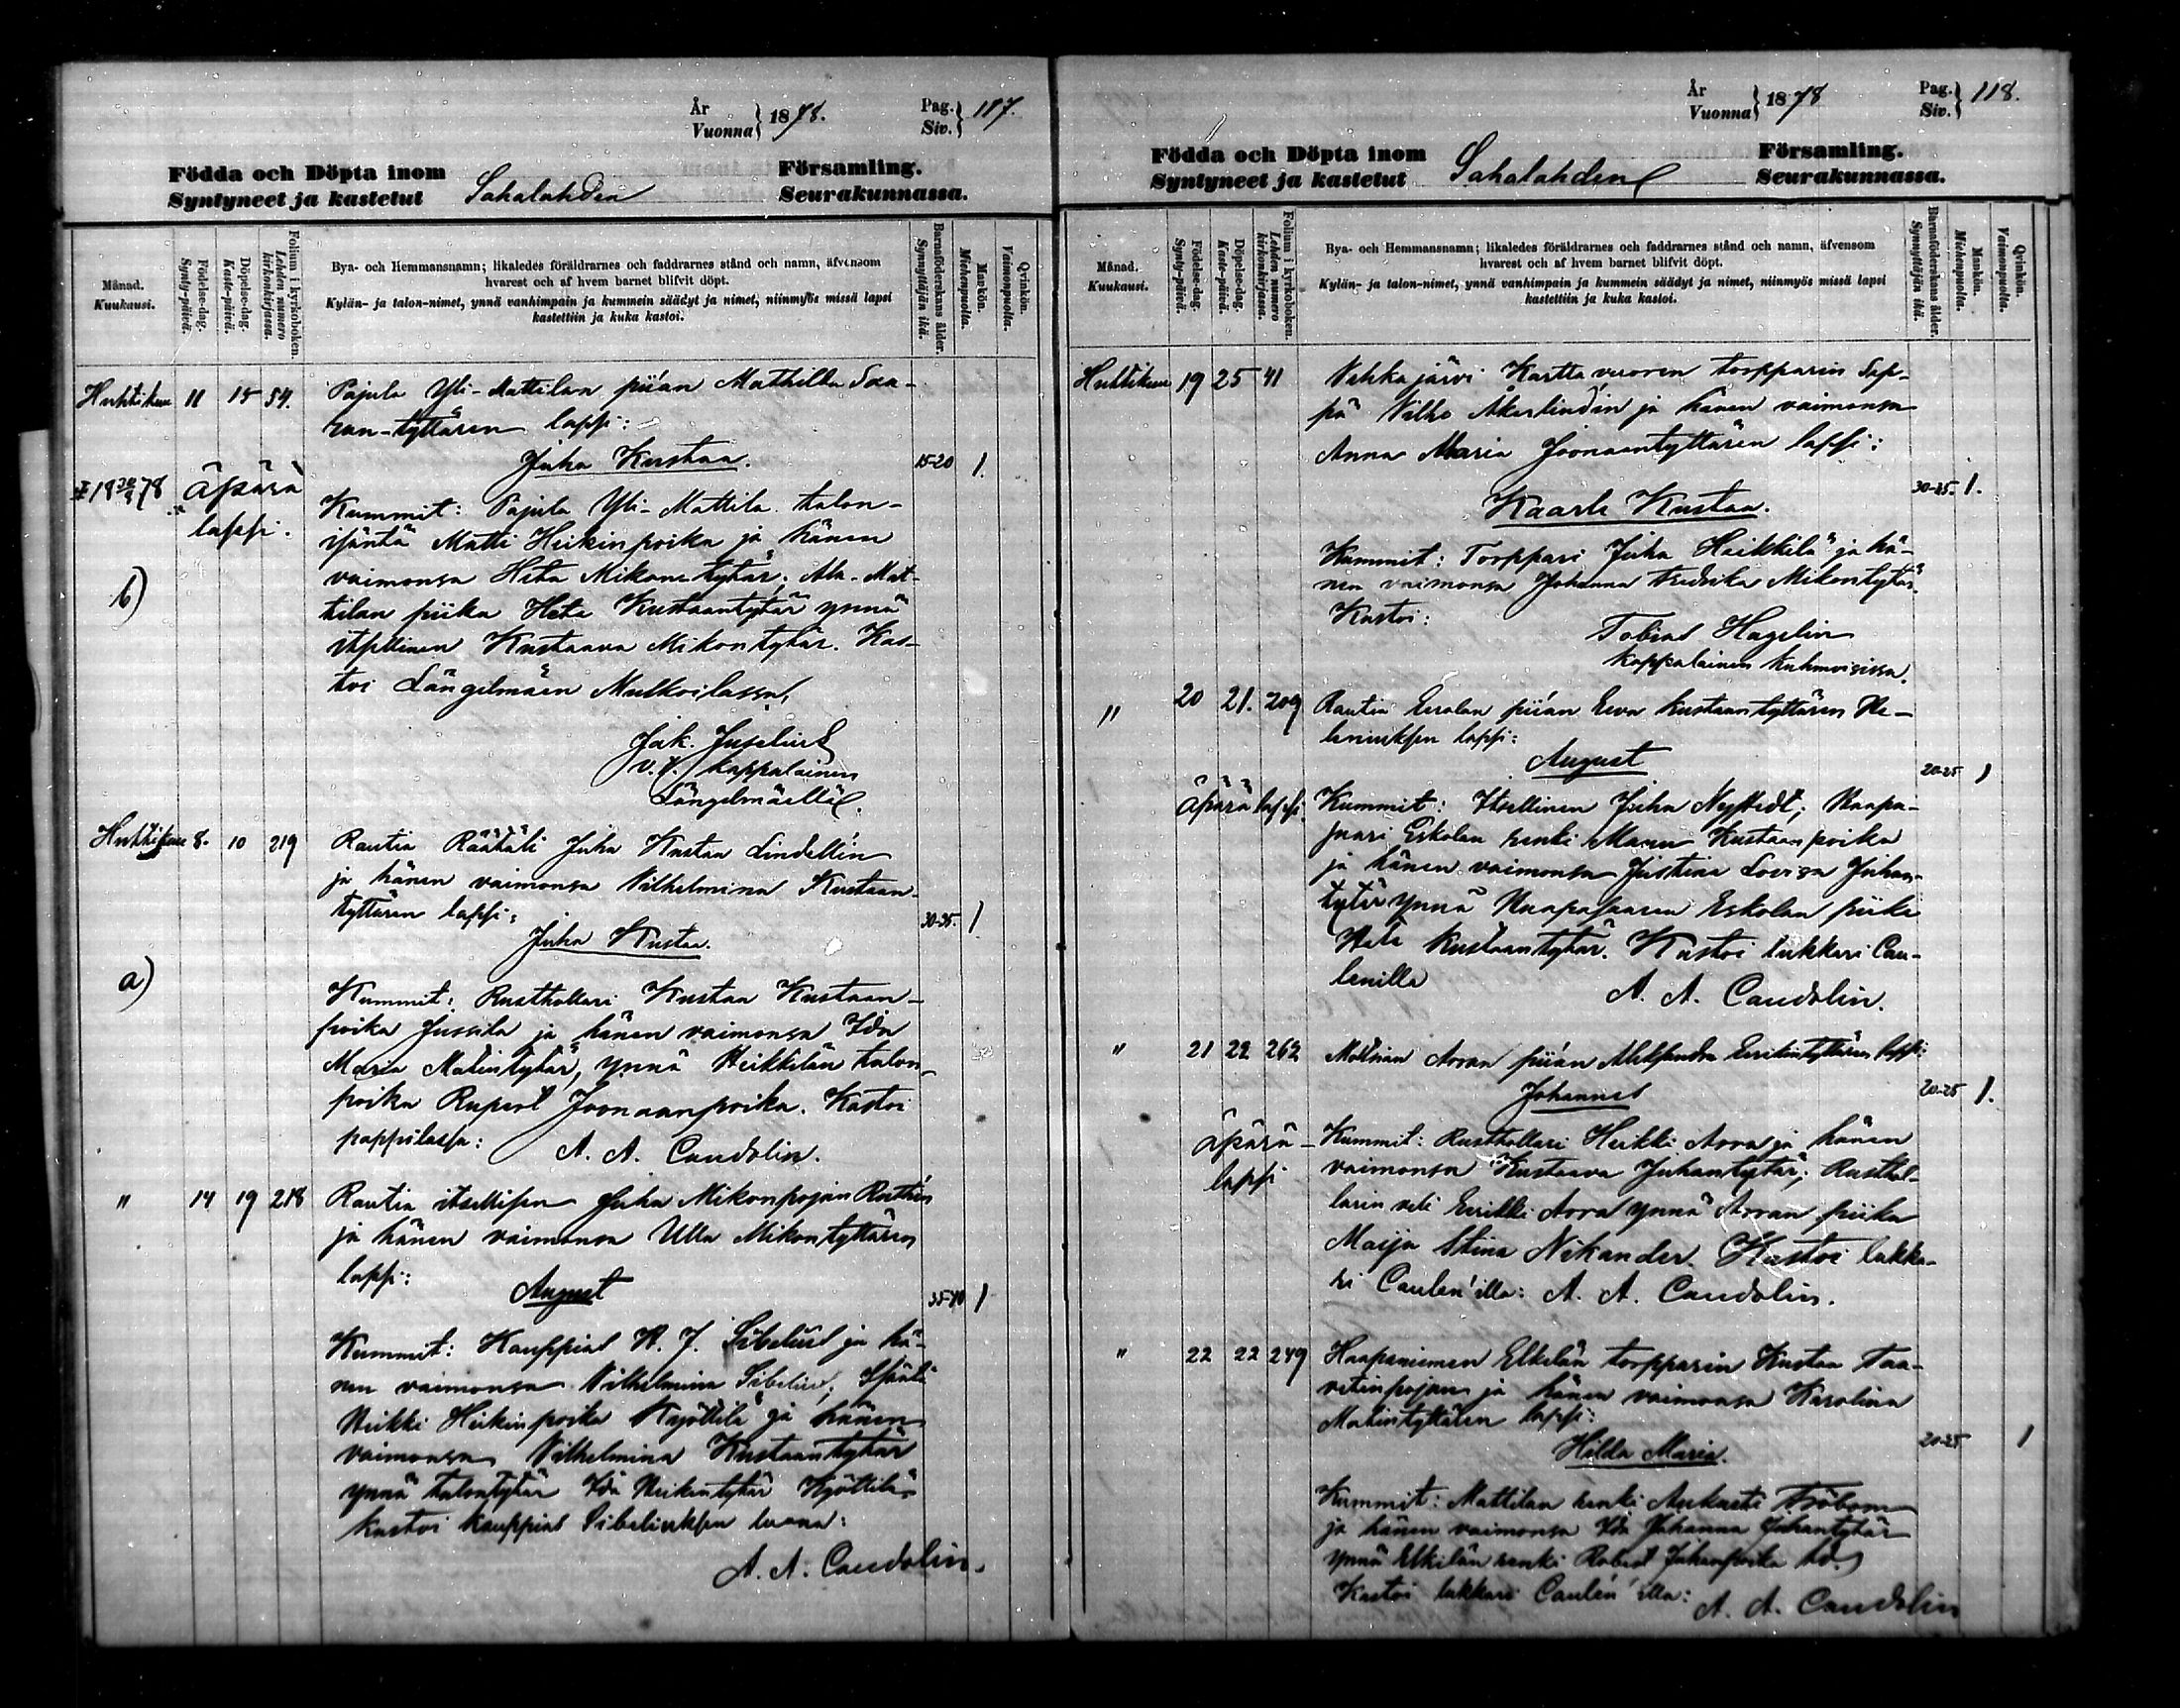 År
Vuonna } 1878.
Pag.
Siv. } 117.
Födda och Döpta inom Församling.
Syntyneet ja kastetut Sahalahden Seurakunnassa.
Månad.
Kuukausi.
Födelse-dag.
Synty-päivä.
Döpelse-dag.
Kaste-päivä.
Folium i kyrkoboken.
Lehden numero kirkonkirjassa.
Bya- och Hemmansnamn; likaledes föräldrarnes och faddrarnes stånd och namn, äfvensom
hvarest och af hvem barnet blifvit döpt.
Kylän- ja talon-nimet, ynnä vanhimpain ja kummein säädyt ja nimet, niinmyös missä lapsi
kastettiin ja kuka kastoi.
Barnaföderskans ålder.
Synnyttäjän ikä.
Mankön.
Miehenpuolta.
Qvinkön.
Vaimonpuolta.
Huhtikuu 11 15 54. Pajula Yli-Mattilan piian Mathilda
tyttären lapsi:
Juha Kustaa. 15-20 1.
äpärä
lapsi.
Kummit: Pajula Yli-Mattila talon-
isäntä Matti Heikinpoika ja hänen
vaimonsa Heta Mikontytär; Ala-Mat-
tilan piika Heta Kustaantytär ynnä
itsellinen Kustaava Mikontytär. Kas-
toi Längelmäen Mulkoilassa,
b)
Jak. Juselius
v.t. kappalainen
Längelmäellä.
Huhtikuu 8. 10 219 Rautia Räätäli Juha Kustaa Lindellin
ja hänen vaimonsa Vilhelmina Kustaan-
tyttären lapsi: 30-35. 1
Juha Kustaa.
a)
Kummit: Rusthollari Kustaa Kustaan-
poika Jussila ja hänen vaimonsa Ida
Maria Matintytär, ynnä Heikkilän talon-
poika Rupert Joonaanpoika. Kastoi
pappilassa: A. A. Candolin.
" 14 19 218 Rautia itsellisen Juha Mikonpojan
ja hänen vaimonsa Ulla Mikontyttären
lapsi:
August 35-40 1
Kummit: Kauppias H. J. Sibelius ja hä-
nen vaimonsa Vilhelmina Sibelius; Isäntä
Heikki Heikinpoika Kyöttilä ja hänen
vaimonsa Vilhelmina Kustaantytär
ynnä talontytär Ida Heikintytär Kyöttilä.
Kastoi kauppias Sibeliuksen luona:
A. A. Candolin.
År
Vuonna } 1878
Pag.
Siv. } 118.
Födda och Döpta inom Församling.
Syntyneet ja kastetut Sahalahden Seurakunnassa.
Månad.
Kuukausi.
Födelse-dag.
Synty-päivä.
Döpelse-dag.
Kaste-päivä.
Folium i kyrkoboken.
Lehden numero kirkonkirjassa.
Bya- och Hemmansnamn; likaledes föräldrarnes och faddrarnes stånd och namn, äfvensom
hvarest och af hvem barnet blifvit döpt.
Kylän- ja talon-nimet, ynnä vanhimpain ja kummein säädyt ja nimet, niinmyös missä lapsi
kastettiin ja kuka kastoi.
Barnaföderskans ålder.
Synnyttäjän ikä.
Mankön.
Miehenpuolta.
Qvinkön.
Vaimonpuolta.
Huhtikuu 19 25 41 Vehkajärvi Karttavuoren torpparin Sep-
pä Vilho Åkerlindin ja hänen vaimonsa
Anna Maria Joonaantyttären lapsi:
Kaarle Kustaa. 30-35. 1.
Kummit: Torppari Juha Heikkilä ja hä-
nen vaimonsa Johanna Fredrika Mikontytär.
Kastoi:
Tobias Hagelin
kappalainen Kuhmoisissa.
" 20 21. 209 Rautia Eerolan piian Eeva Kustaantyttären He-
leniuksen lapsi:
August 20-25 1
äpärä lapsi. Kummit: Itsellinen Juha Nystedt; Haapa-
saari Eskolan renki Manu Kustaanpoika
ja hänen vaimonsa Justina Lovisa Juhan-
tytär ynnä Haapasaaren Eskolan piika
Heta Kustaantytär. Kastoi lukkari Cau-
lenilla
A. A. Candolin.
" 21 22 262 Moltsian Arran piian Aleksandra Eerikintyttären lapsi:
Johannes 20-25 1.
äpärä-
lapsi
Kummit: Rusthollari Heikki Arra ja hänen
vaimonsa Kustaava Juhantytär; Rusthol-
larin veli Eerikki Arra ynnä Arran piika
Maija Stina Nikander. Kastoi lukka-
ri Caulen'illa: A. A. Candolin.
" 22 22 249 Haapaniemen Elkelän torpparin Kustaa Taa-
vetinpojan ja hänen vaimonsa Karolina
Matintyttären lapsi:
Hilda Maria. 20-25 1
Kummit: Mattilan renki Aukusti Fröbom
ja hänen vaimonsa Ida Johanna Juhantytär
ynnä Elkelän renki Robert Juhanpoika
Kastoi lukkari Caulén'illa: A. A. Candolin